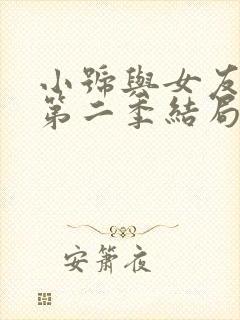 小號與女友
第二季結局
安簫夜